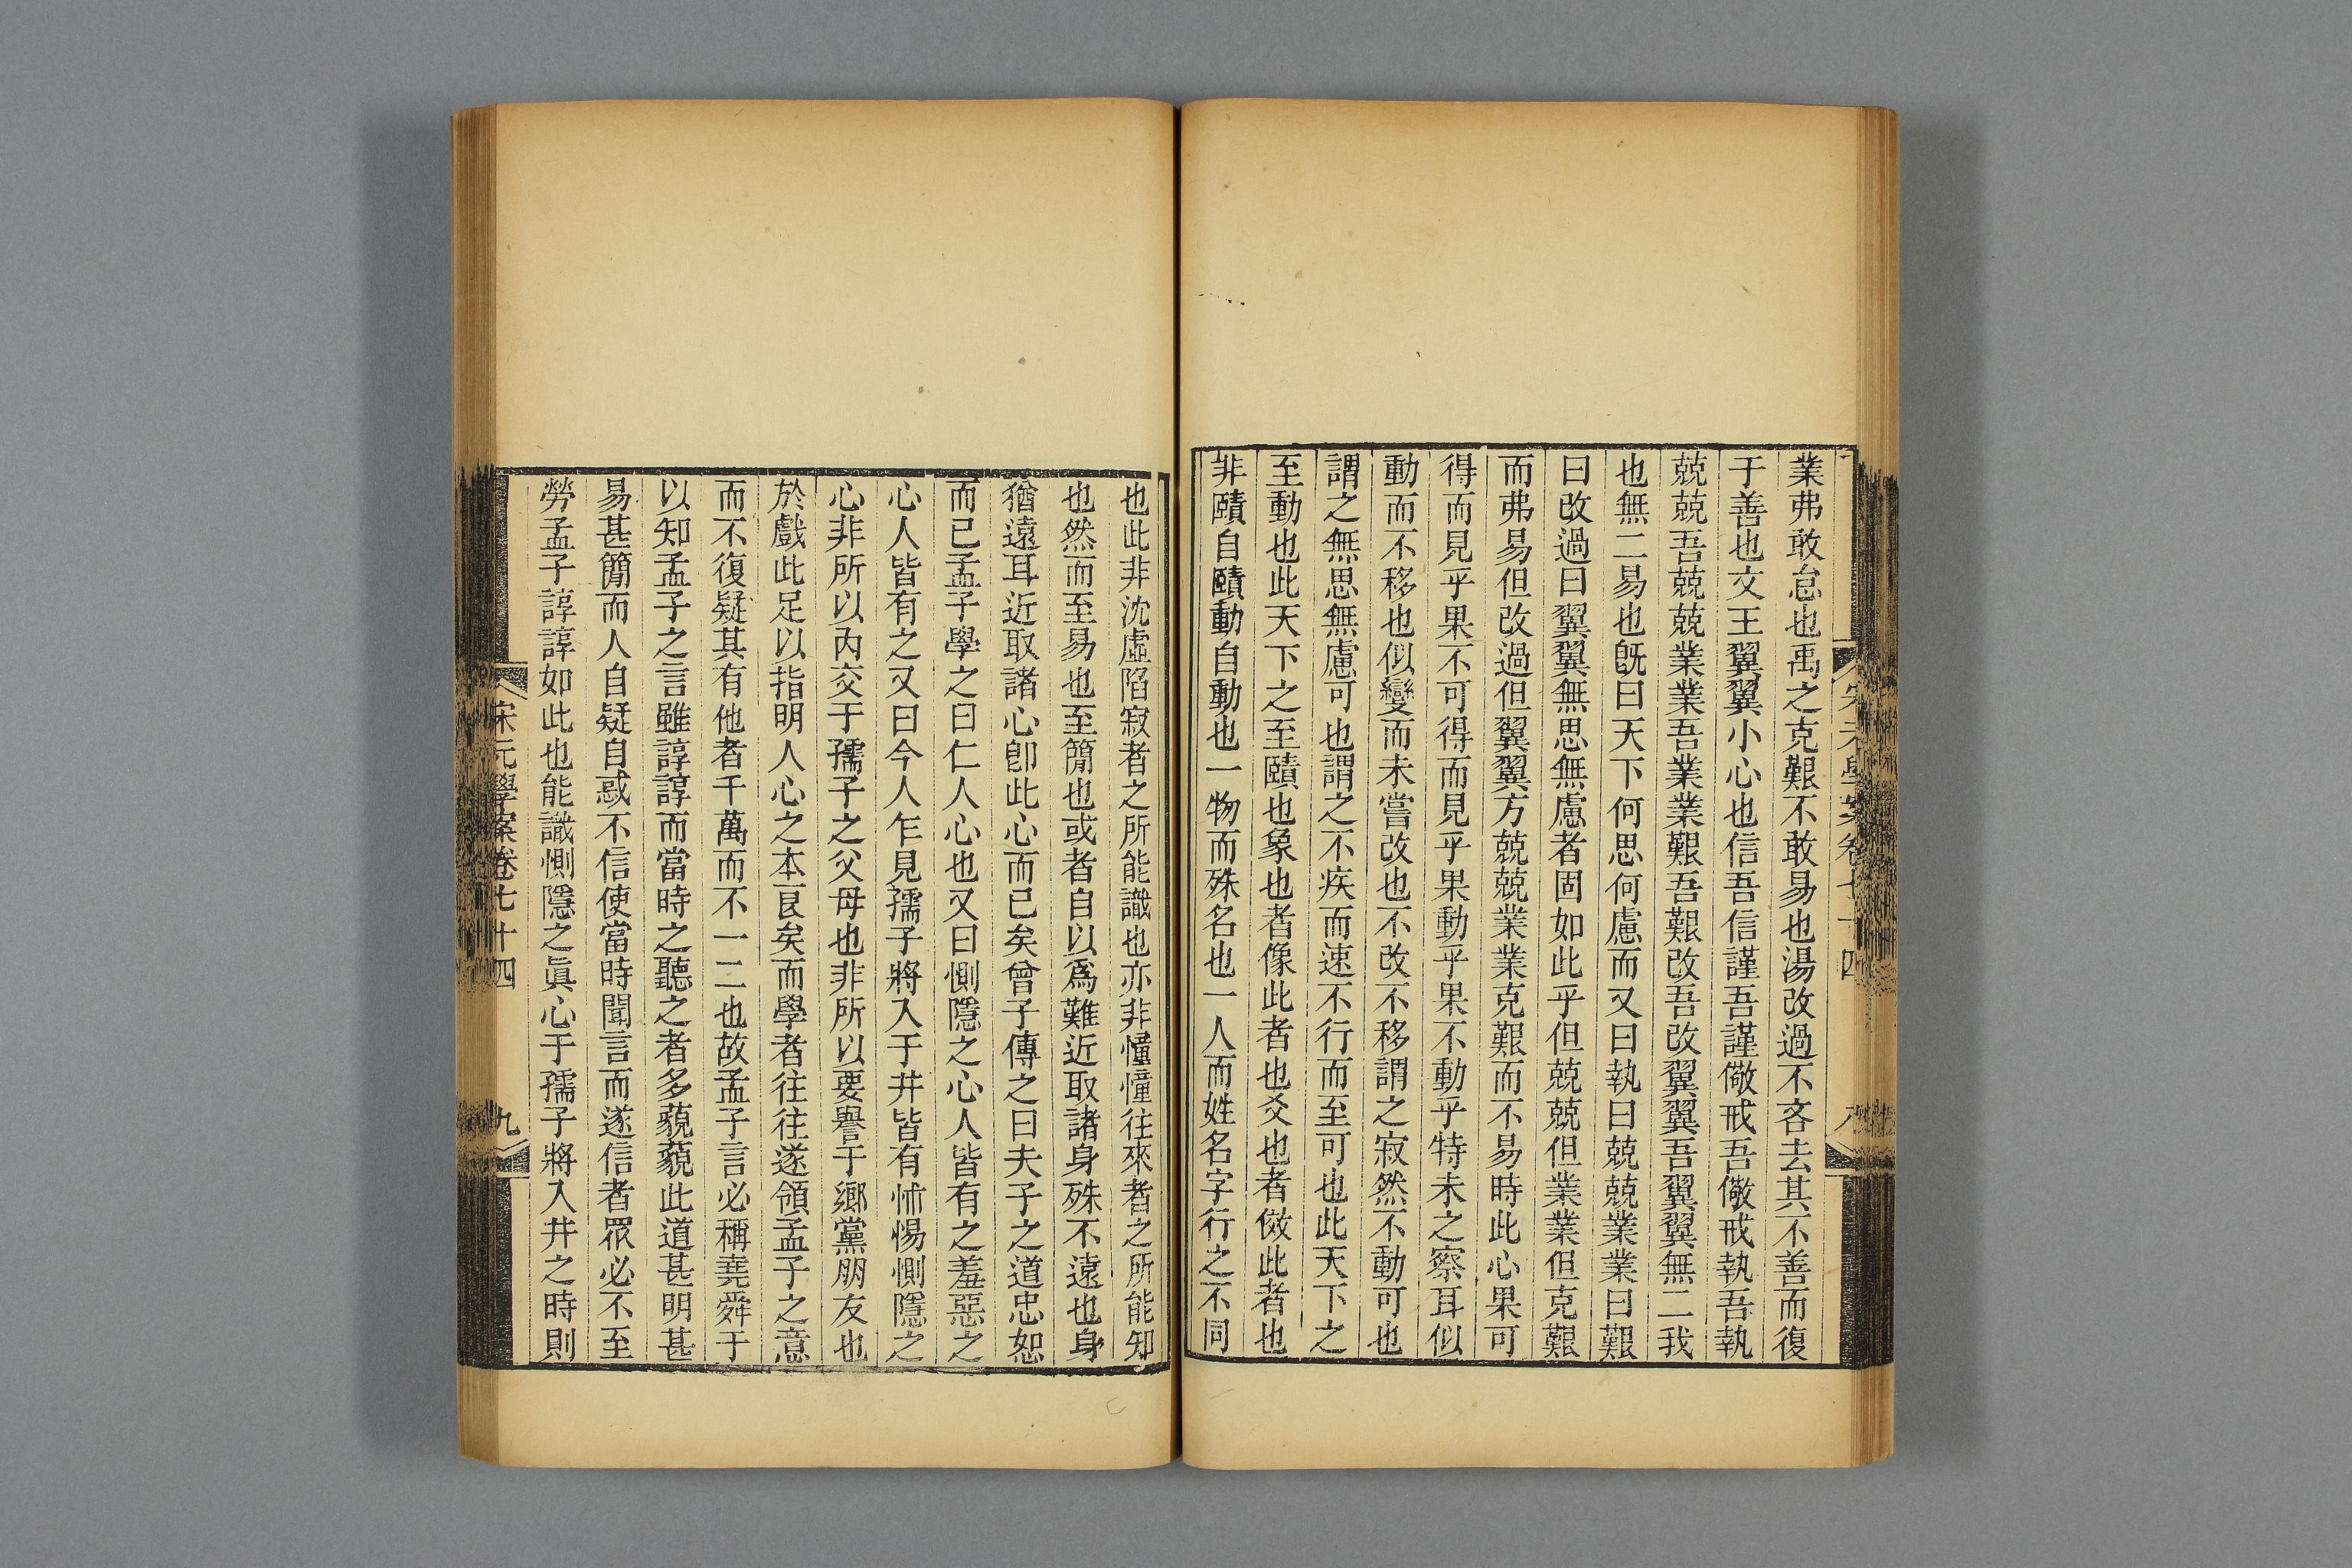 業弗敢怠也禹之克艱不敢易也湯改過不吝去其不善而復
于善也文王翼翼小心也信吾信謹吾謹儆戒吾儆戒執吾執
兢兢吾兢兢業業吾業業艱吾艱改吾改翼翼吾翼翼無二我
也無二易也旣曰天下何思何慮而又曰執曰兢兢業業曰艱
曰改過曰翼翼無思無慮者固如此乎但兢兢但業業但克艱
而弗易但改過但翼翼方兢兢業業克艱而不易時此心果可
得而見乎果不可得而見乎果動乎果不動乎特未之察耳似
動而不移也似變而未嘗改也不改不移謂之寂然不動可也
謂之無思無慮可也謂之不疾而速不行而至可也此天下之
至動也此天下之至賾也象也者像此者也爻也者傚此者也
非賾自賾動自動也一物而殊名也一人而姓名字行之不同
也此非沈虛陷寂者之所能識也亦非憧憧往來者之所能知
也然而至易也至簡也或者自以爲難近取諸身殊不遠也身
猶遠耳近取諸心卽此心而已矣曾子傳之曰夫子之道忠恕
而已孟子學之曰仁人心也又曰惻隱之心人皆有之羞惡之
心人皆有之又曰今人乍見孺子將入于井皆有怵惕惻隱之
心非所以內交于孺子之父母也非所以要譽于鄉黨朋友也
於戲此足以指明人心之本良矣而學者往往遂領孟子之意
而不復疑其有他者千萬而不一二也故孟子言必稱堯舜于
以知孟子之言雖諄諄而當時之聽之者多藐藐此道甚明甚
易甚簡而人自疑自惑不信使當時聞言而遂信者眾必不至
勞孟子諄諄如此也能識惻隱之眞心于孺子將入井之時則
宋元學案卷七十四
九